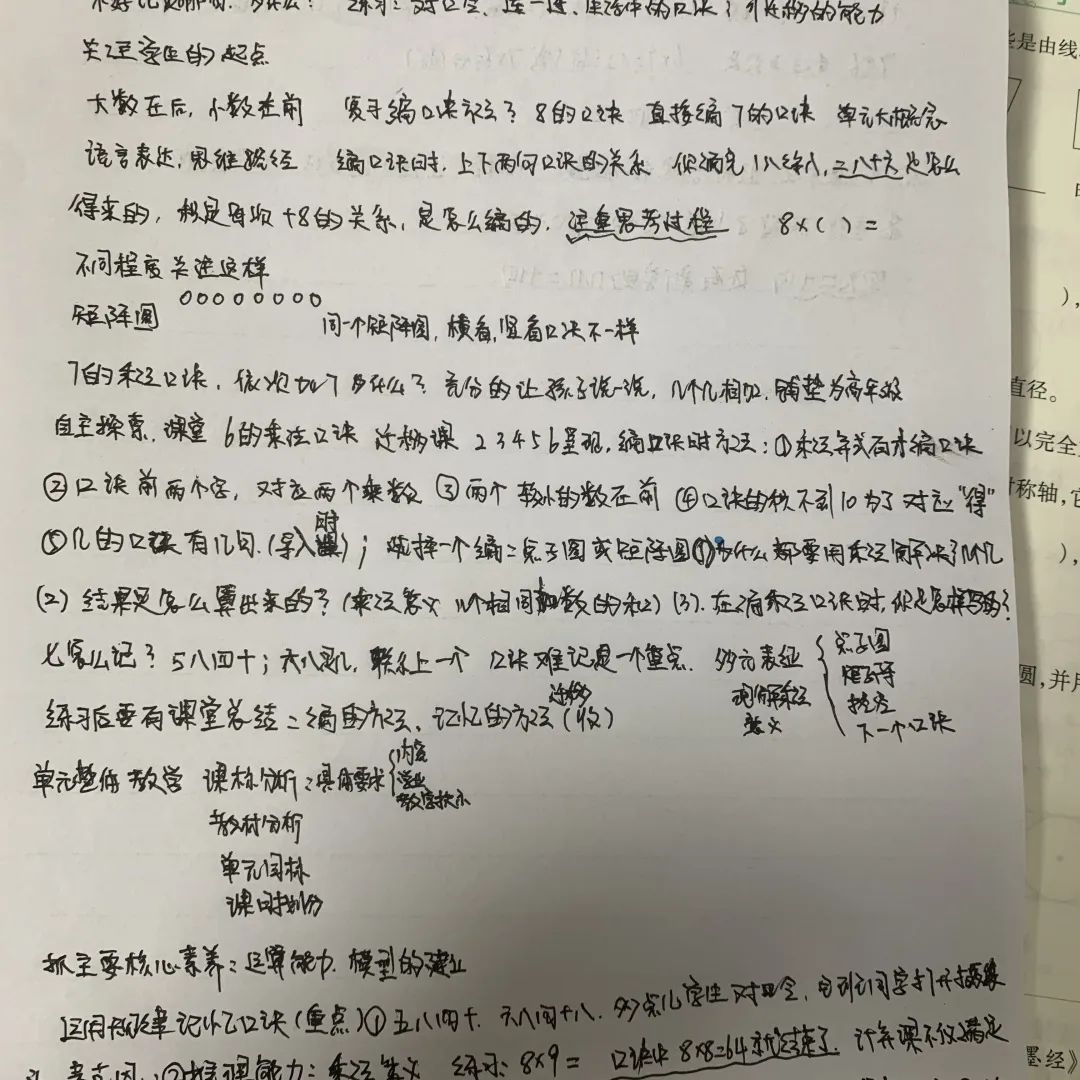 不好记是哪句，为什么？ 练习：对口令、连一连、生活中的口诀？ 迁移的能力
关注学生的起点
大数在后，小数在前 复习编口诀方法？8的口诀 直接编7的口诀 单元大概念
语言表达，思维路径 编口诀时，上下两句口诀的关系 你编完一八得八，二八十六是怎么
得来的，积是每次+8的关系，是怎么编的，注重思考过程 8×( )=
不同程度关注这样
矩阵图 ○○○○○○○○
同一个矩阵图，横看，竖看口诀不一样
7的乘法口诀，依次加7为什么？充分的让孩子说一说，几个几相加，铺垫为高年级
自主探索，课堂 6的乘法口诀 迁移课 23456呈现，编口诀时方法：①乘法算式再才编口诀
②口诀前两个字，对应两个乘数 ③两个较小的数在前 ④口诀的积不到10为了对应“得”
⑤几的口诀有几句.(导入时)；选择一个编：点子图或矩阵图①为什么都要用乘法解决？几个几
(2)结果是怎么算出来的？(乘法意义 几个相同加数的和) (3).在编乘法口诀时，你是怎样写的？
怎么记？五八四十；六八 ，联系上一个 口诀难记是一个重点. 多元表征 点子图
矩阵
下一个口诀
理解乘法
意义
练习后要有课堂总结：编的方法、记忆的方法(收) 迁移
单元整体教学 课标分析：具体要求 内容
学业
教学提示
教材分析
单元目标
课时划分
抓主要核心素养：运算能力，模型的建立
运用规律记忆口诀(重点)①五八四十，六八四十八，多点儿学生对口令，
②推理能力：乘法意义 练习：8×9= 口诀中8×8=64就结束了，计算课不仅满足
些是由线
直径。
以完全
对称轴，它
圆，并用
墨经》